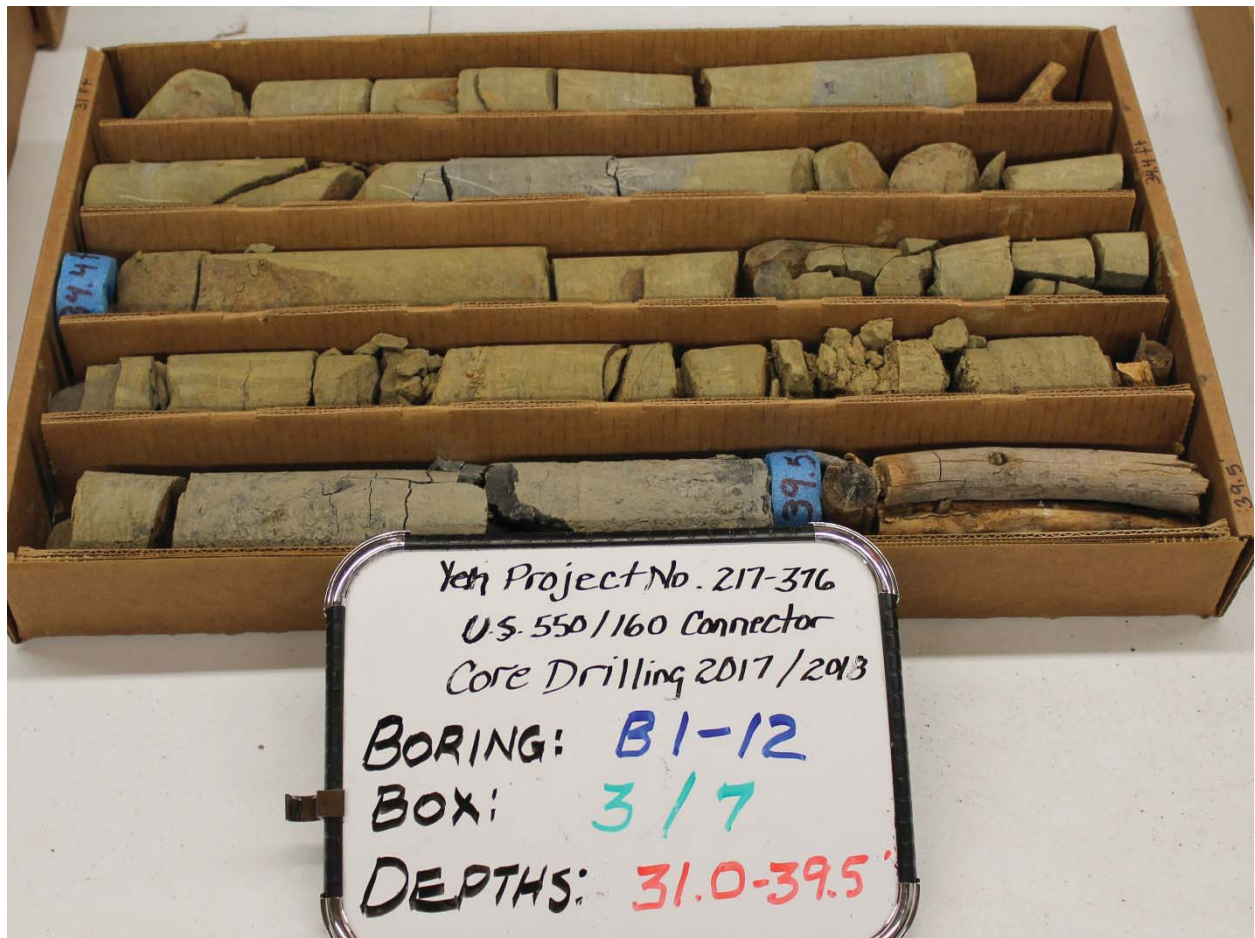 31 ft
34.4 ft
34.4 ft
39.5
39.5'
Yeh Project No. 217-376
U.S. 550/160 Connector
Core Drilling 2017/2018
BORING: B1-12
BOX: 3/7
DEPTHS: 31.0-39.5'